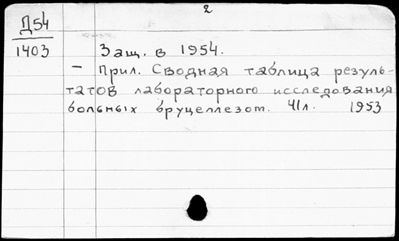 2
Д54
1403
Защ. в 1954.
— Прил. Сводная таблица резуль-
татов лабораторного исследования
больных бруцеллезом. 41л. 1953